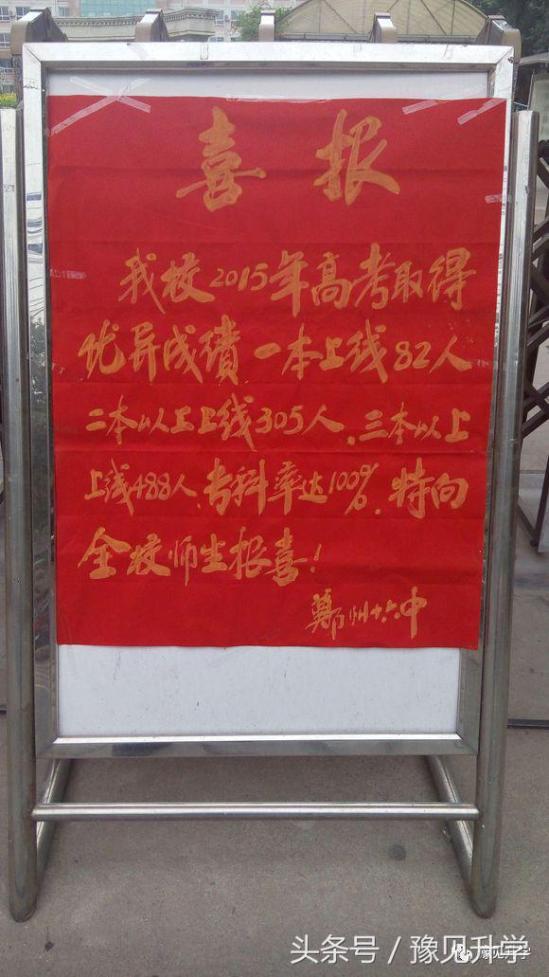 喜报
我校2015年高考取得
优异成绩.一本上线82人
二本以上上线305人.三本以上
上线488人.专科率达100%.特向
全校师生报喜!
郑州十六中
头条号/豫见升学
豫见升学